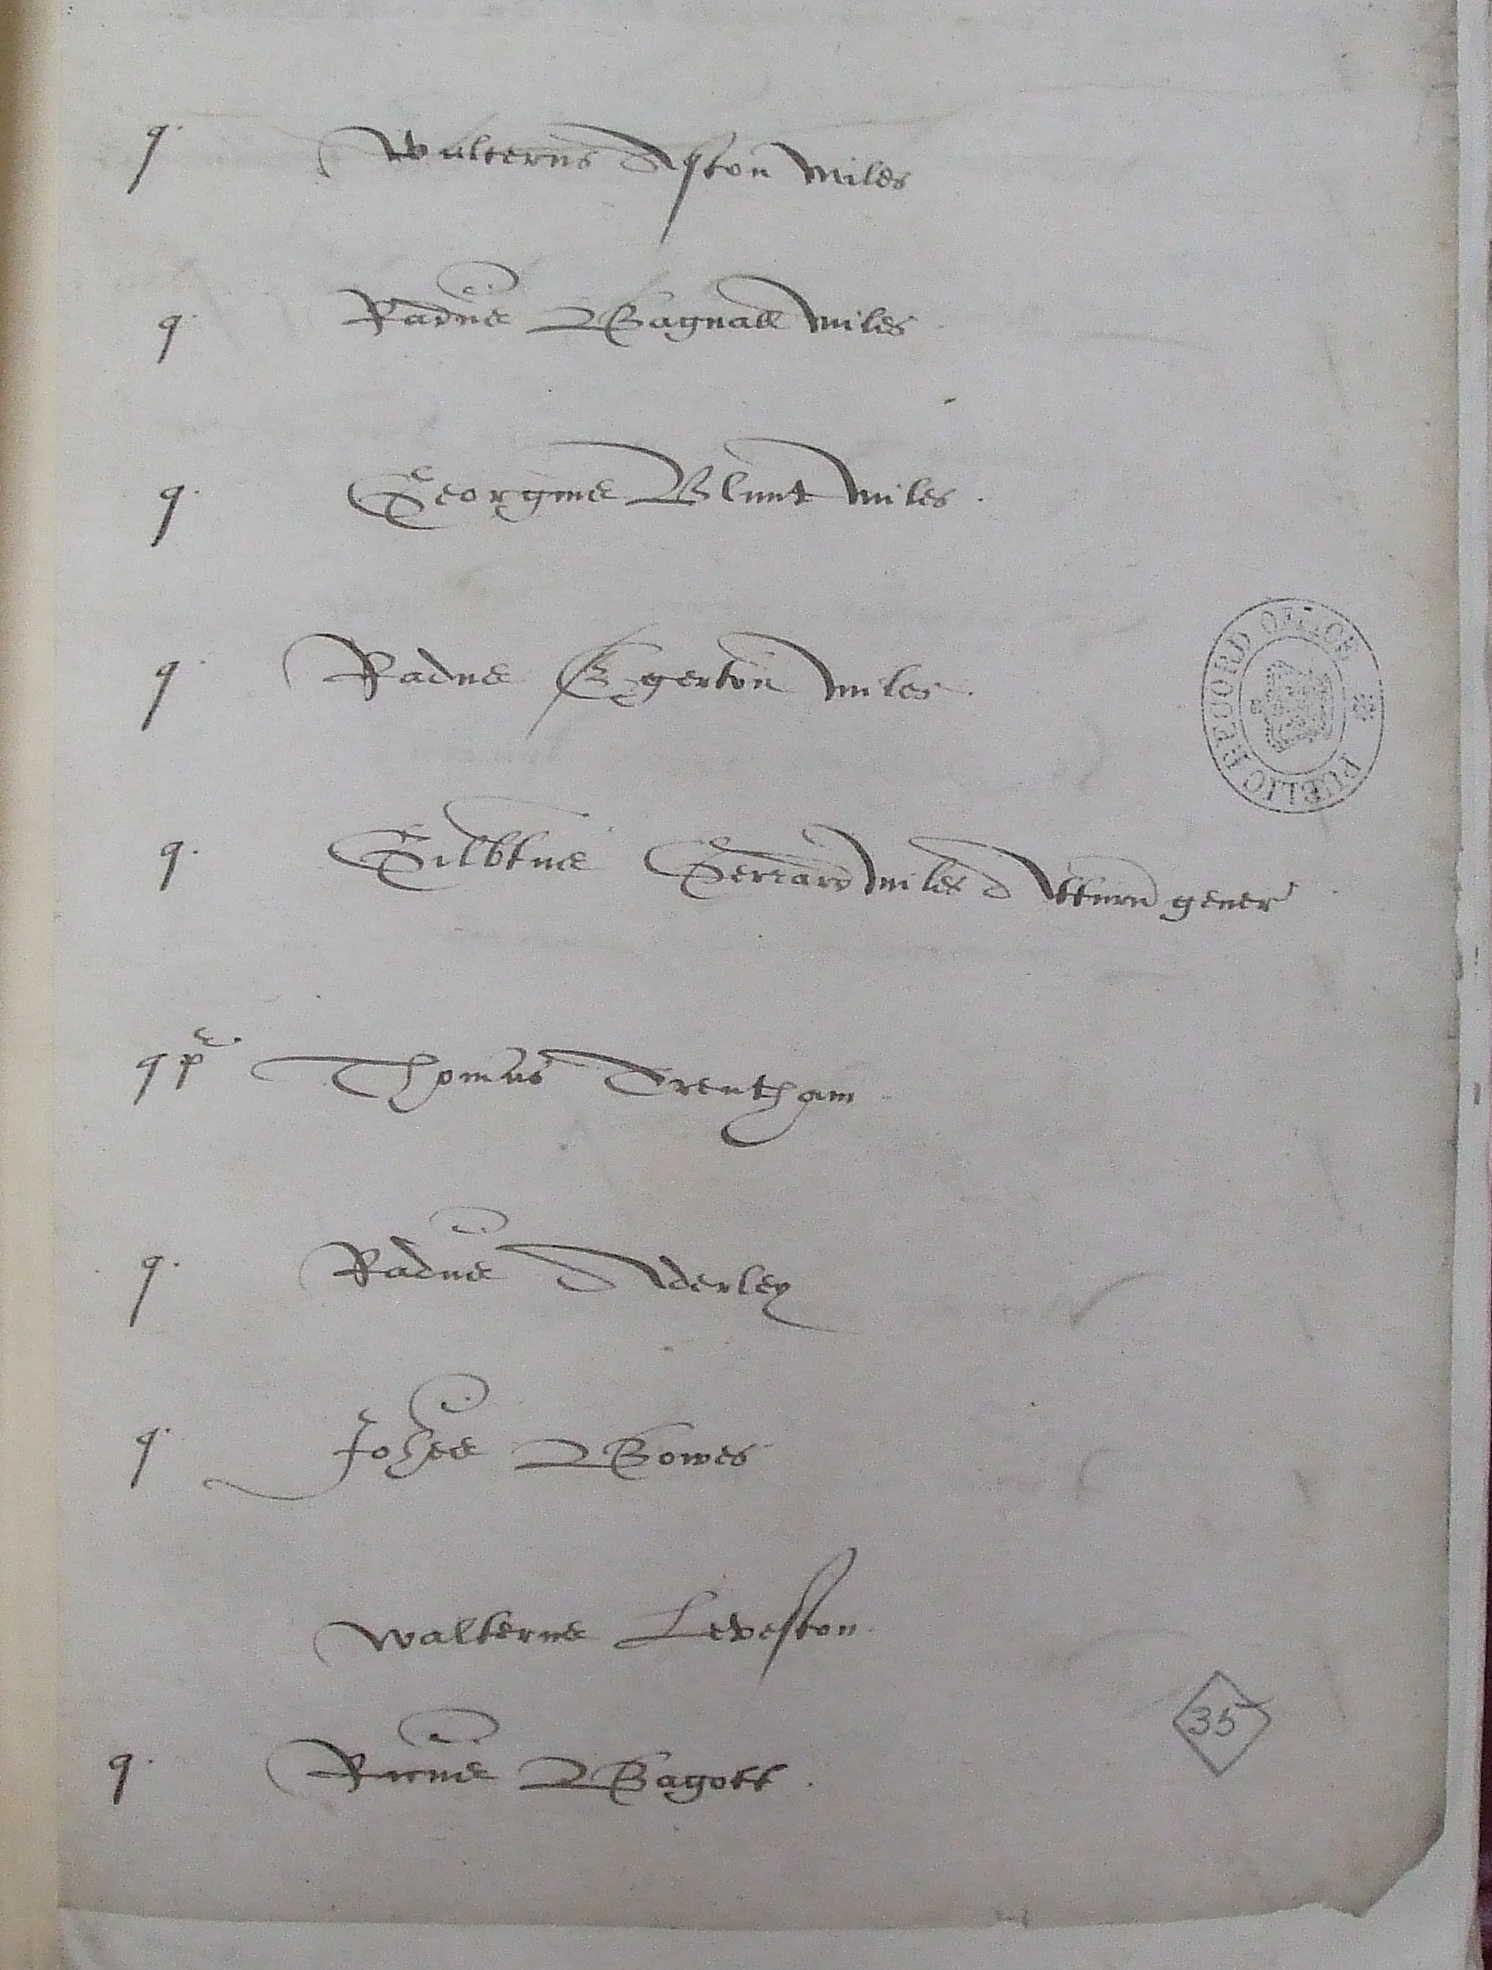 q. Walterus Aston miles
q. Radūs Bagnall miles
q. Georgius Blunt miles.
q. Radus Egerton miles.
q. Gilbtus Gerrard miles Atturn gener
q p Thomas Trentham
q. Radūs Aderley
q. Johēs Bowes
Walterus Leveson.
q. Ricūs Bagott.
PUBLIC RECORD OFFICE
35